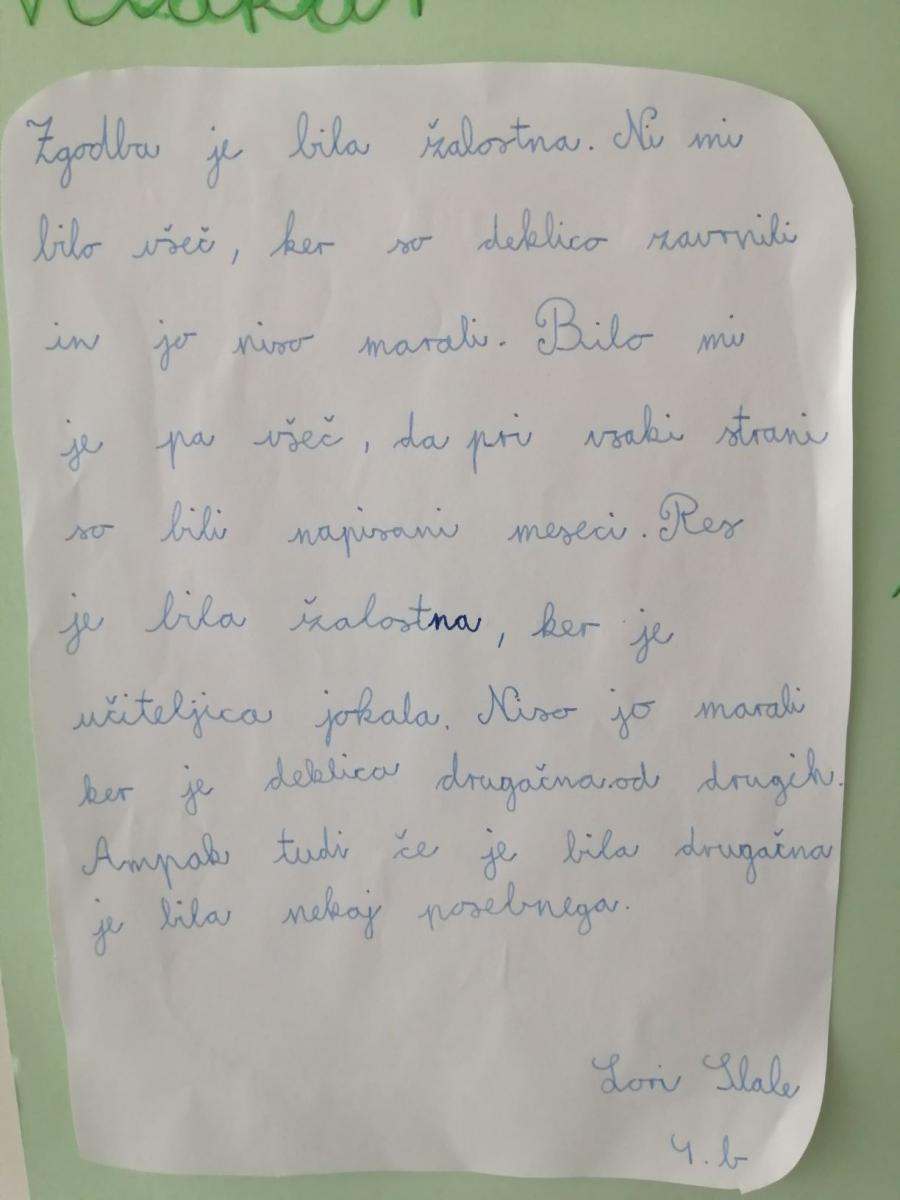 Zgodba je bila žalostna. Ni mi
bilo všeč, ker so deklico zavrnili
in jo niso marali. Bilo mi
je pa všeč, da pri vsaki strani
so bili napisani meseci. Res
je bila žalostna, ker je
učiteljica jokala. Niso jo marali
ker je deklica drugačna.od drugih.
Ampak tudi če je bila drugačna
je bila nekaj posebnega.
Lori
4. b